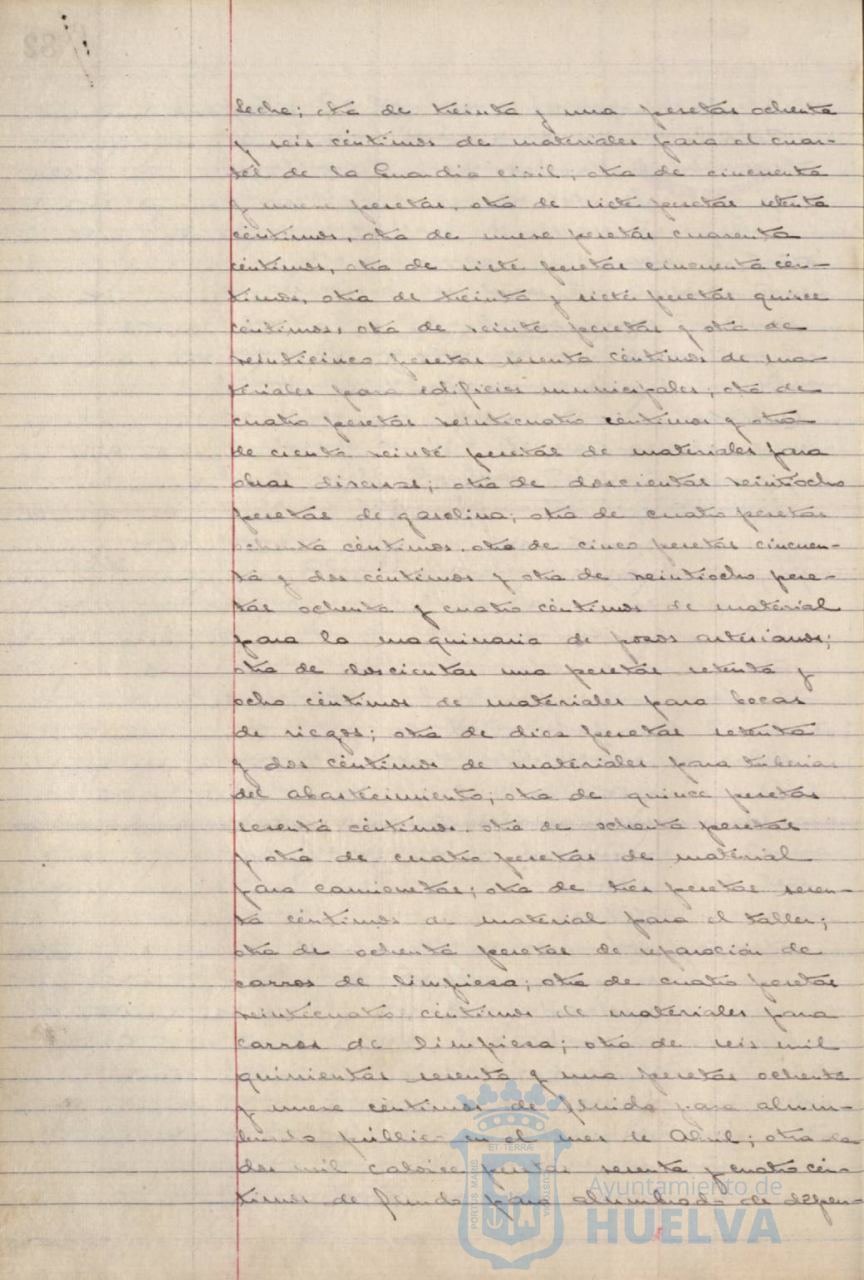 leche; otra de treinta y una pesetas ochenta
y seis céntimos de materiales para el cuar-
tel de la Guardia civil; otra de cincuenta
y nueve pesetas, otra de siete pesetas setenta
céntimos, otra de nueve pesetas cuarenta
céntimos, otra de siete pesetas cincuenta cén-
timos, otra de treinta y siete pesetas quince
céntimos, otra de veinte pesetas y otra de
veinticinco pesetas sesenta céntimos de ma-
teriales para edificios municipales; otra de
cuatro pesetas veinticuatro céntimos y otra
de ciento veinte pesetas de materiales para
obras diversas; otra de doscientas veintiocho
pesetas de gasolina; otra de cuatro pesetas
ochenta céntimos, otra de cinco pesetas cincuen-
ta y dos céntimos y otra de veintiocho pese-
tas ochenta y cuatro céntimos de material
para la maquinaria de pozos artesianos;
otra de doscientas una pesetas setenta y
ocho céntimos de materiales para bocas
de riegos; otra de diez pesetas setenta
y dos céntimos de materiales para tuberias
del abastecimiento; otra de quince pesetas
sesenta céntimos, otra de ochenta pesetas
y otra de cuatro pesetas de material
para camionetas; otra de tres pesetas sesen-
ta céntimos de material para el taller;
otra de ochenta pesetas de reparación de
carros de limpieza; otra de cuatro pesetas
veinticuatro céntimos de materiales para
carros de limpieza; otra de seis mil
quinientas sesenta y una pesetas ochenta
y nueve céntimos de fluido para alum-
brado público en el mes de Abril; otra de
dos mil catorce pesetas sesenta y cuatro cén-
timos de fluido para alumbrado de depen-
ET TERRA
PORTUS MARIS
CUSTODIA
Ayuntamiento de
HUELVA